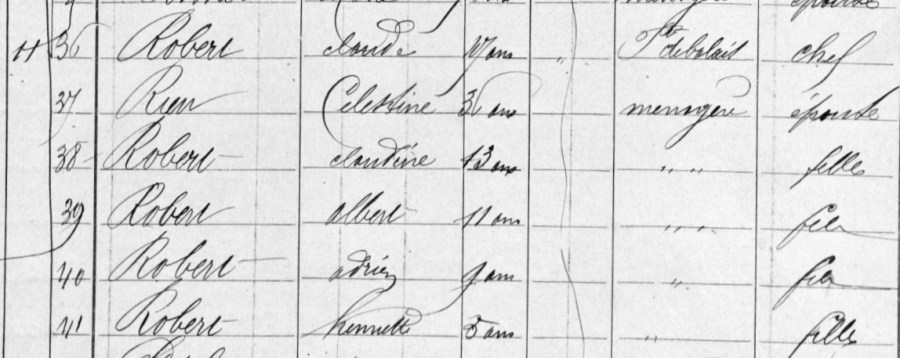 11 36 Robert claude 47 ans " chef
37 Rieu Celestine 36 ans menagère épouse
38 Robert claudine 13 ans " " fille
39 Robert albert 11 ans " " fils
40 Robert adrien 9 ans " fils
41 Robert henriette 5 ans " fille